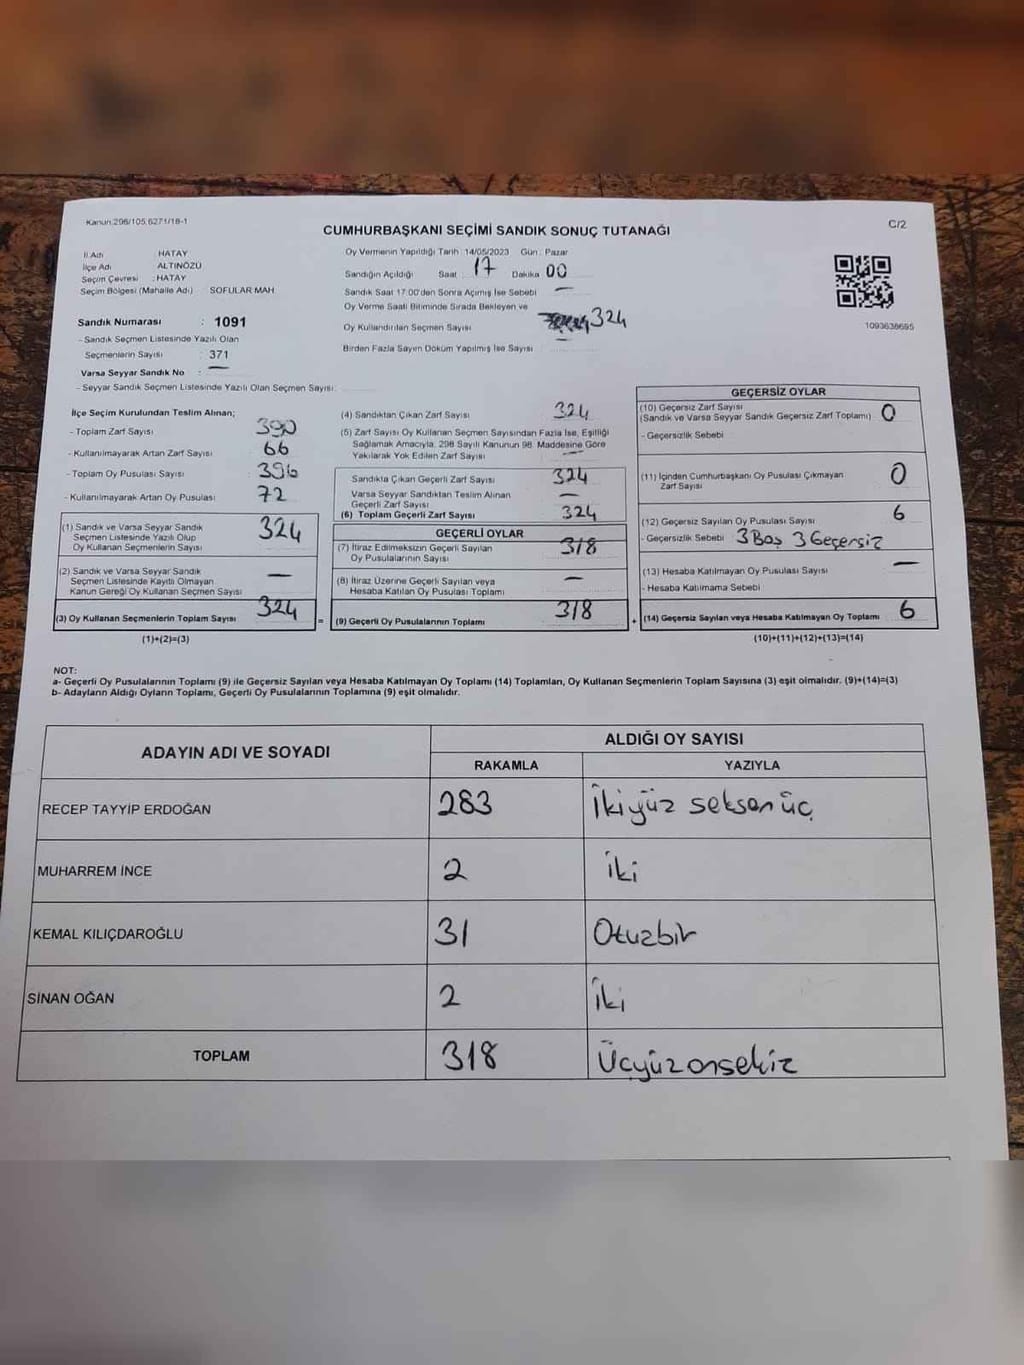 Kanun:298/105,6271/18-1
C/2
CUMHURBAŞKANI SEÇİMİ SANDIK SONUÇ TUTANAĞI
İl Adı : HATAY
İlçe Adı : ALTINÖZÜ
Seçim Çevresi : HATAY
Seçim Bölgesi (Mahalle Adı) : SOFULAR MAH.
Sandık Numarası : 1091
- Sandık Seçmen Listesinde Yazılı Olan
Seçmenlerin Sayısı : 371
Varsa Seyyar Sandık No : —
- Seyyar Sandık Seçmen Listesinde Yazılı Olan Seçmen Sayısı:
Oy Vermenin Yapıldığı Tarih : 14/05/2023 Gün : Pazar
Sandığın Açıldığı Saat : 17 Dakika 00
Sandık Saat 17.00'den Sonra Açımış İse Sebebi —
Oy Verme Saati Bitiminde Sırada Bekleyen ve
Oy Kullandırılan Seçmen Sayısı 324
Birden Fazla Sayım Döküm Yapılmış İse Sayısı —
1093638695
İlçe Seçim Kurulundan Teslim Alınan;
- Toplam Zarf Sayısı : 390
- Kullanılmayarak Artan Zarf Sayısı : 66
- Toplam Oy Pusulası Sayısı : 396
- Kullanılmayarak Artan Oy Pusulası : 72
(1) Sandık ve Varsa Seyyar Sandık
Seçmen Listesinde Yazılı Olup
Oy Kullanan Seçmenlerin Sayısı 324
(2) Sandık ve Varsa Seyyar Sandık
Seçmen Listesinde Kayıtlı Olmayan
Kanun Gereği Oy Kullanan Seçmen Sayısı —
(3) Oy Kullanan Seçmenlerin Toplam Sayısı 324
(1)+(2)=(3)
(4) Sandıktan Çıkan Zarf Sayısı 324
(5) Zarf Sayısı Oy Kullanan Seçmen Sayısından Fazla İse, Eşitliği
Sağlamak Amacıyla, 298 Sayılı Kanunun 98. Maddesine Göre
Yakılarak Yok Edilen Zarf Sayısı —
Sandıkla Çıkan Geçerli Zarf Sayısı 324
Varsa Seyyar Sandıktan Teslim Alınan
Geçerli Zarf Sayısı —
(6) Toplam Geçerli Zarf Sayısı 324
GEÇERLİ OYLAR
(7) İtiraz Edilmeksizin Geçerli Sayılan
Oy Pusulalarının Sayısı 318
(8) İtiraz Üzerine Geçerli Sayılan veya
Hesaba Katılan Oy Pusulası Toplamı —
= (9) Geçerli Oy Pusulalarının Toplamı 318
GEÇERSİZ OYLAR
(10) Geçersiz Zarf Sayısı
(Sandık ve Varsa Seyyar Sandık Geçersiz Zarf Toplamı) 0
- Geçersizlik Sebebi
(11) İçinden Cumhurbaşkanı Oy Pusulası Çıkmayan
Zarf Sayısı 0
(12) Geçersiz Sayılan Oy Pusulası Sayısı 6
- Geçersizlik Sebebi 3 Boş 3 Geçersiz
(13) Hesaba Katılmayan Oy Pusulası Sayısı —
- Hesaba Katılmama Sebebi
+ (14) Geçersiz Sayılan veya Hesaba Katılmayan Oy Toplamı 6
(10)+(11)+(12)+(13)=(14)
NOT:
a- Geçerli Oy Pusulalarının Toplamı (9) ile Geçersiz Sayılan veya Hesaba Katılmayan Oy Toplamı (14) Toplamları, Oy Kullanan Seçmenlerin Toplam Sayısına (3) eşit olmalıdır. (9)+(14)=(3)
b- Adayların Aldığı Oyların Toplamı, Geçerli Oy Pusulalarının Toplamına (9) eşit olmalıdır.
ADAYIN ADI VE SOYADI
ALDIĞI OY SAYISI
RAKAMLA YAZIYLA
RECEP TAYYİP ERDOĞAN 283 İkiyüz seksen üç
MUHARREM İNCE 2 İki
KEMAL KILIÇDAROĞLU 31 Otuzbir
SİNAN OĞAN 2 İki
TOPLAM 318 Üçyüzonsekiz